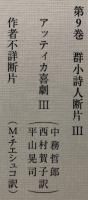 第9巻 群小詩人断片 III
アッティカ喜劇 III
中務哲郎
西村賀子訳
平山晃司
作者不詳断片
（M・チエシュコ訳）